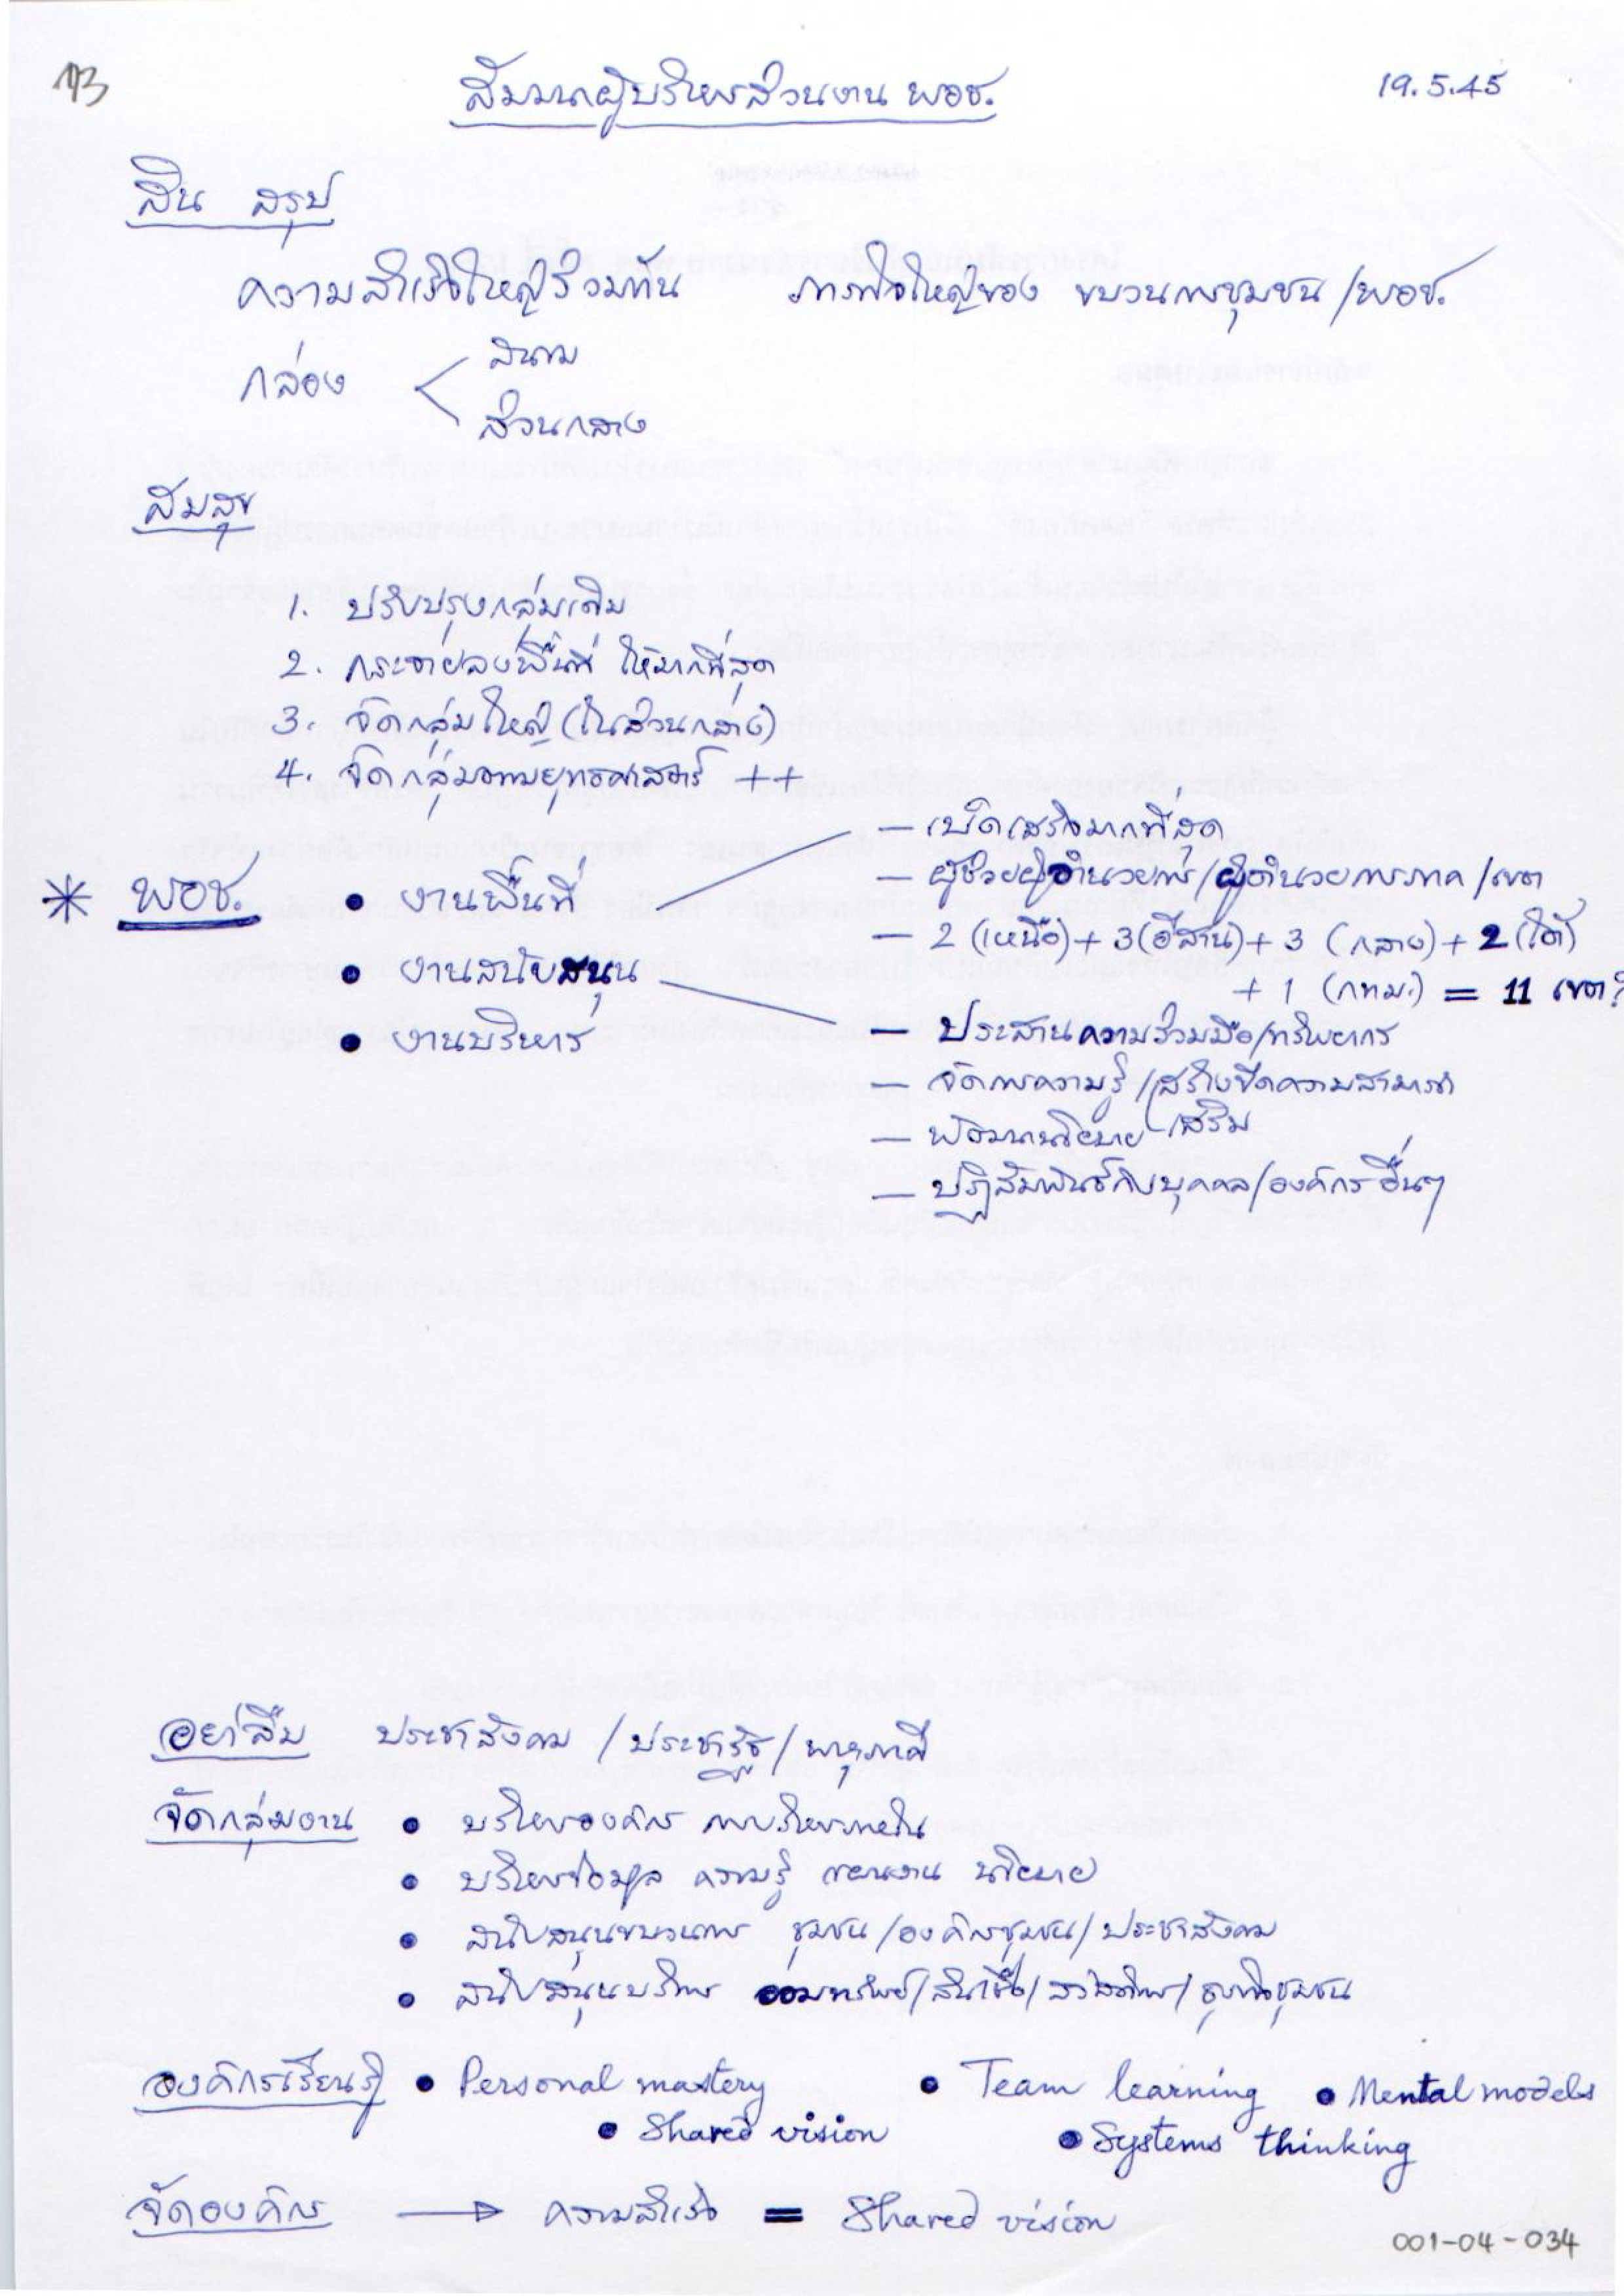 113
สัมมนาผู้บริหารส่วนงาน พอช.
19.5.45
สิน สรุป
ความสำเร็จใหญ่ร่วมกัน ภารกิจใหญ่ของ ขบวนการชุมชน / พอช.
กล่อง < สนาม
ส่วนกลาง
สมสุข
1. ปรับปรุงกลุ่มเดิม
2. กระจายลงพื้นที่ ให้มากที่สุด
3. จัดกลุ่มใหญ่ (ในส่วนกลาง)
4. จัดกลุ่มตามยุทธศาสตร์ ++
* พอช.
• งานพื้นที่
— เบ็ดเสร็จมากที่สุด
— ผู้ช่วยผู้อำนวยการ / ผู้อำนวยการภาค / เขต
— 2 (เหนือ) + 3 (อีสาน) + 3 (กลาง) + 2 (ใต้)
+ 1 (กทม.) = 11 เขต?
• งานสนับสนุน
— ประสานความร่วมมือ/ทรัพยากร
— จัดการความรู้ / สร้างขีดความสามารถ
เสริม
— พัฒนานโยบาย
— ปฏิสัมพันธ์กับบุคคล/องค์กรอื่นๆ
• งานบริหาร
อย่าลืม ประชาสังคม / ประชารัฐ / พหุภาคี
จัดกลุ่มงาน • บริหารองค์กร การบริหารภายใน
• บริหารข้อมูล ความรู้ แผนงาน นโยบาย
• สนับสนุนขบวนการ ชุมชน / องค์กรชุมชน / ประชาสังคม
• สนับสนุนบริการ ออมทรัพย์ / สินเชื่อ / สวัสดิการ / ธุรกิจชุมชน
องค์กรเรียนรู้ • Personal mastery • Team learning • Mental models
• Shared vision • Systems thinking
จัดองค์กร → ความสำเร็จ = Shared vision
001-04-034